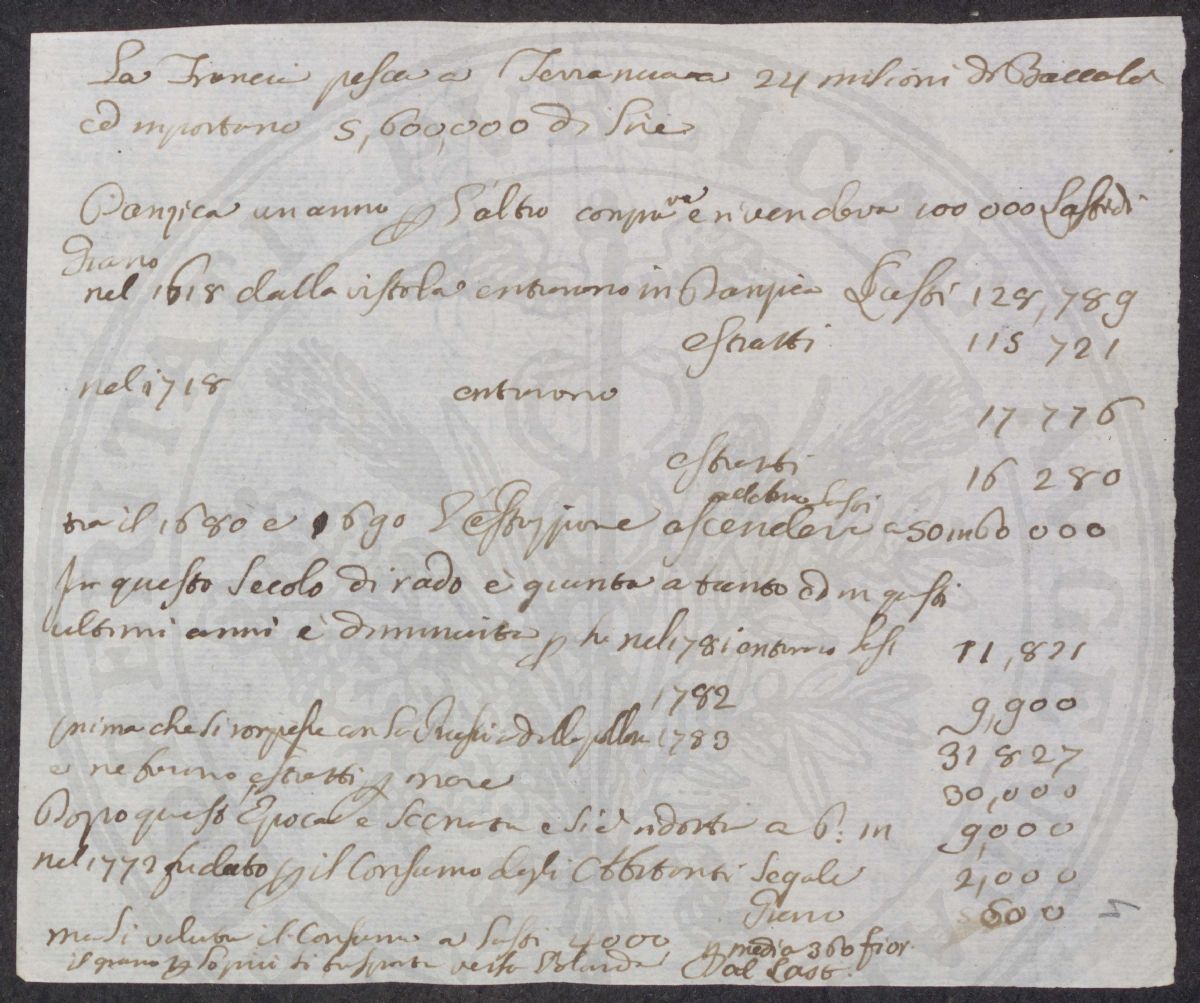 La Francia pesca a Terranuova 24 milioni di Baccala
ed importano 5,600,000 di Lire
Danzica un anno p l'altro comprava e rivendeva 100 000 Lasti di
Grano
nel 1618 dalla vistola entrarono in Danzica Lasti 128,789
estratti 115 721
nel 1718 entrarono
17 776
estratti 16 280
Lasti
tra il 1680 e 1690 l'Estrazzione ascendeva a 50 in 60 000
In questo Secolo di rado è giunta a tanto ed in questi
ultimi anni è diminuita p che nel 1781 entrarono Last 11,821
1782 9,900
prima che si rompesse con la Prussia 1783 31 827
e ne furono estratti p mare 30,000
Dopo quest Epoca è scemata e si è ridotta a 6: in 9,000
nel 1772 fu dato p il Consumo degli Abitanti Segale 2,000
Grano 600
ma si valuta il Consumo a Lasti 4000 p media 360 fior.
il grano p lo più si trasporta verso Olanda al Last.